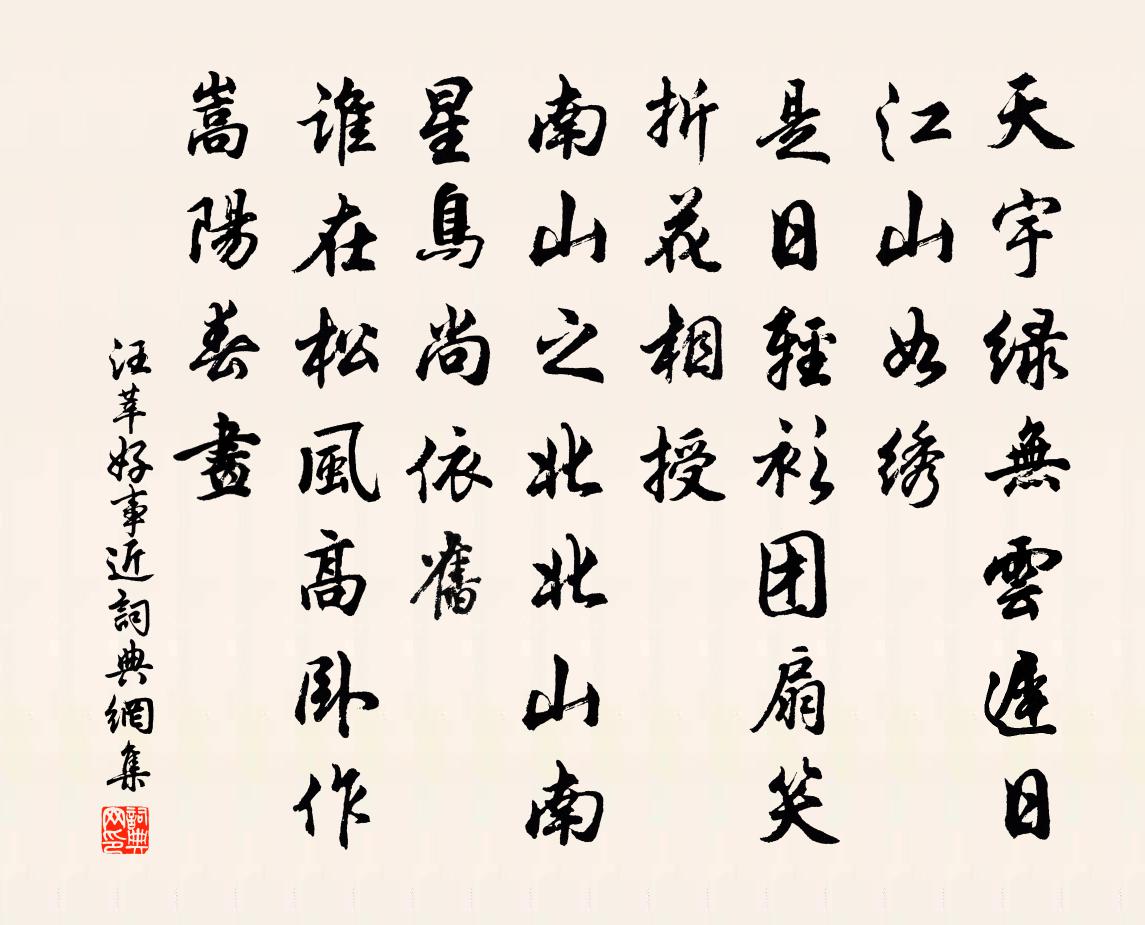 天宇绿無雲遲日
江山如绣
是日輕衫团扇笑
折花相授
南山之北北山南
星鳥尚依舊
誰在松風高卧作
嵩陽春晝
汪莘好事近詞典網集
詞典网印